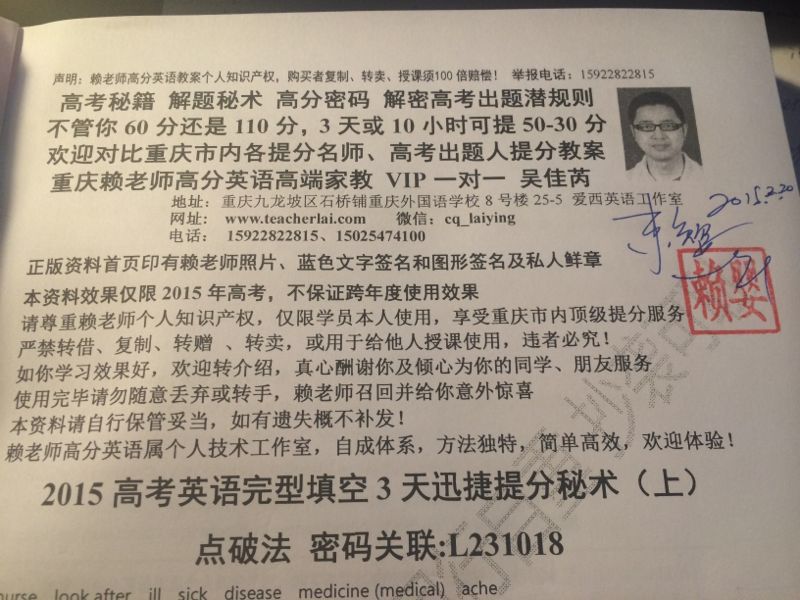 声明：赖老师高分英语教案个人知识产权，购买者复制、转卖、授课须100 倍赔偿！ 举报电话：15922822815
高考秘籍 解题秘术 高分密码 解密高考出题潜规则
不管你 60 分还是 110 分，3 天或 10 小时可提 50-30 分
欢迎对比重庆市内各提分名师、高考出题人提分教案
重庆赖老师高分英语高端家教 VIP 一对一 吴佳芮
地址：重庆九龙坡区石桥铺重庆外国语学校 8 号楼 25-5 爱西英语工作室
网址： www.teacherlai.com 微信：cq_laiying
电话： 15922822815、15025474100
2015.2.20
赖婴
正版资料首页印有赖老师照片、蓝色文字签名和图形签名及私人鲜章
本资料效果仅限 2015 年高考，不保证跨年度使用效果
请尊重赖老师个人知识产权，仅限学员本人使用，享受重庆市内顶级提分服务
严禁转借、复制、转赠 、转卖，或用于给他人授课使用，违者必究！
如你学习效果好，欢迎转介绍，真心酬谢你及倾心为你的同学、朋友服务
使用完毕请勿随意丢弃或转手，赖老师召回并给你意外惊喜
本资料请自行保管妥当，如有遗失概不补发！
赖老师高分英语属个人技术工作室，自成体系，方法独特，简单高效，欢迎体验！
2015 高考英语完型填空 3 天迅捷提分秘术（上）
点破法 密码关联:L231018
nurse look after ill sick disease medicine (medical) ache